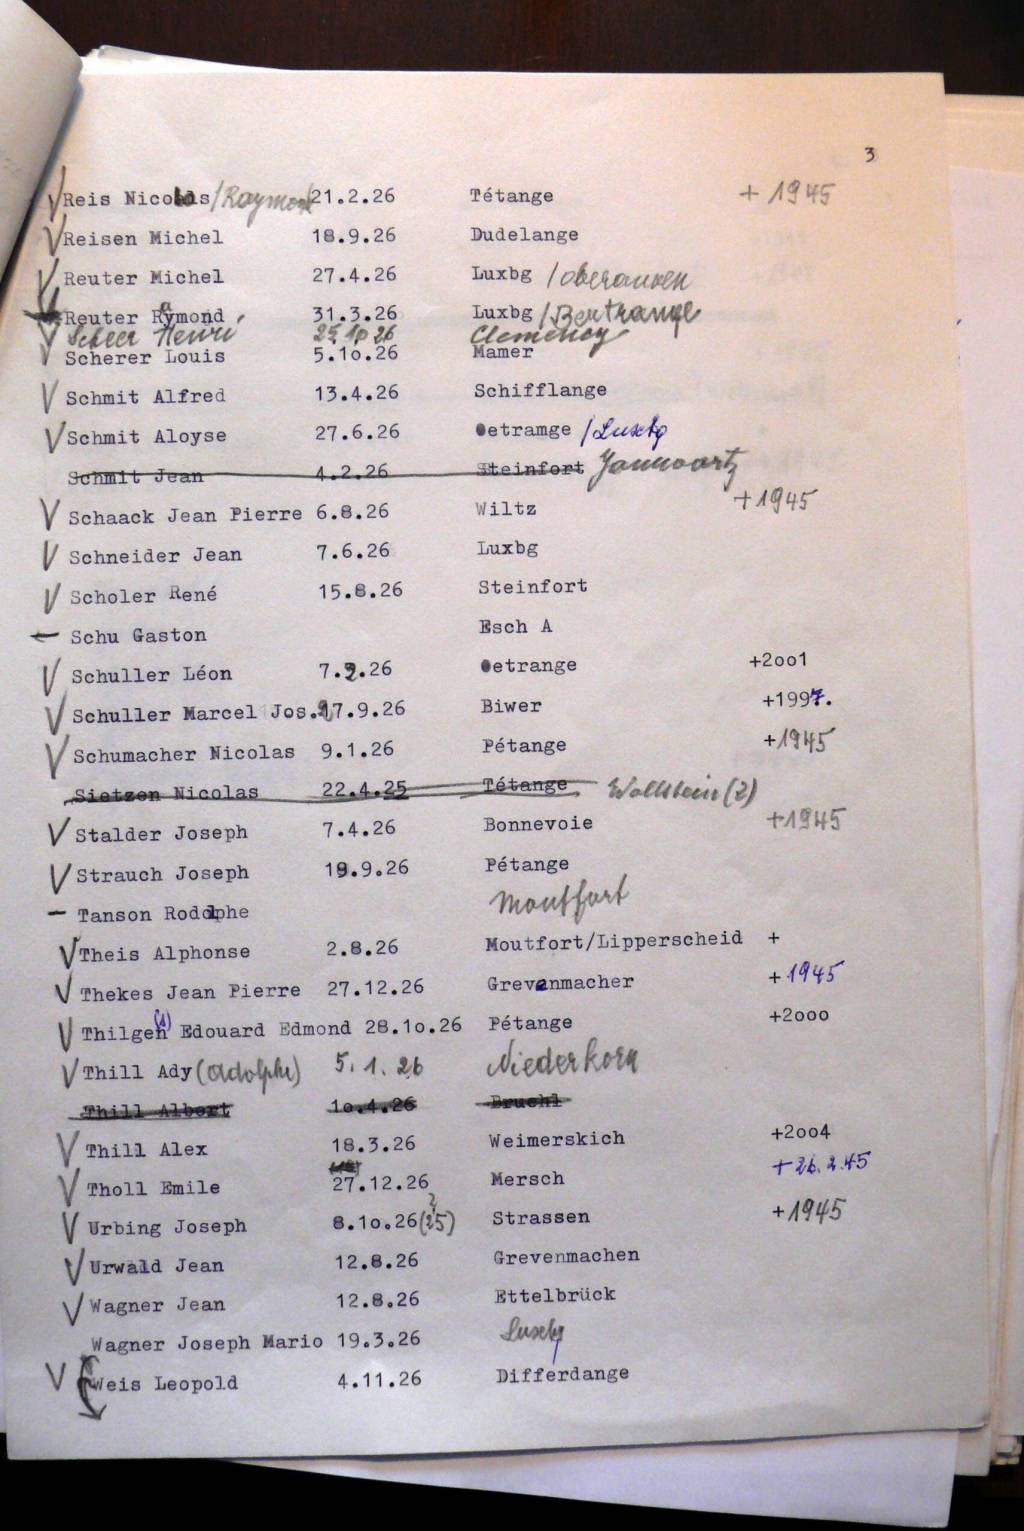 3
Reis Nicolas /Raymond 21.2.26 Tétange + 1945
Reisen Michel 18.9.26 Dudelange
Reuter Michel 27.4.26 Luxbg /Oberanven
Reuter Raymond 31.3.26 Luxbg /Bertrange
Scheer Henri 25.10.26 Clemency
Scherer Louis 5.1o.26 Mamer
Schmit Alfred 13.4.26 Schifflange
Schmit Aloyse 27.6.26 Oetramge /Luxbg
Schmit Jean 4.2.26 Steinfort
+1945
Schaack Jean Pierre 6.8.26 Wiltz
Schneider Jean 7.6.26 Luxbg
Scholer René 15.8.26 Steinfort
Schu Gaston Esch A
Schuller Léon 7.2.26 Oetrange +2oo1
Schuller Marcel Jos. 17.9.26 Biwer +1997.
Schumacher Nicolas 9.1.26 Pétange +1945
Sietzen Nicolas 22.4.25 Tétange Wollstein (2)
Stalder Joseph 7.4.26 Bonnevoie +1945
Strauch Joseph 19.9.26 Pétange
Tanson Rodolphe Moutfort
Theis Alphonse 2.8.26 Moutfort/Lipperscheid +
Thekes Jean Pierre 27.12.26 Grevenmacher + 1945
Thilgen (1) Edouard Edmond 28.1o.26 Pétange +2ooo
Thill Ady (Adolphe) 5.1.26 Niederkorn
Thill Albert 1o.4.26 Bruchl
Thill Alex 18.3.26 Weimerskich +2oo4
Tholl Emile 27.12.26 Mersch +26.2.45
Urbing Joseph 8.1o.26 (25) ? Strassen +1945
Urwald Jean 12.8.26 Grevenmachen
Wagner Jean 12.8.26 Ettelbrück
Wagner Joseph Mario 19.3.26 Luxbg
Weis Leopold 4.11.26 Differdange